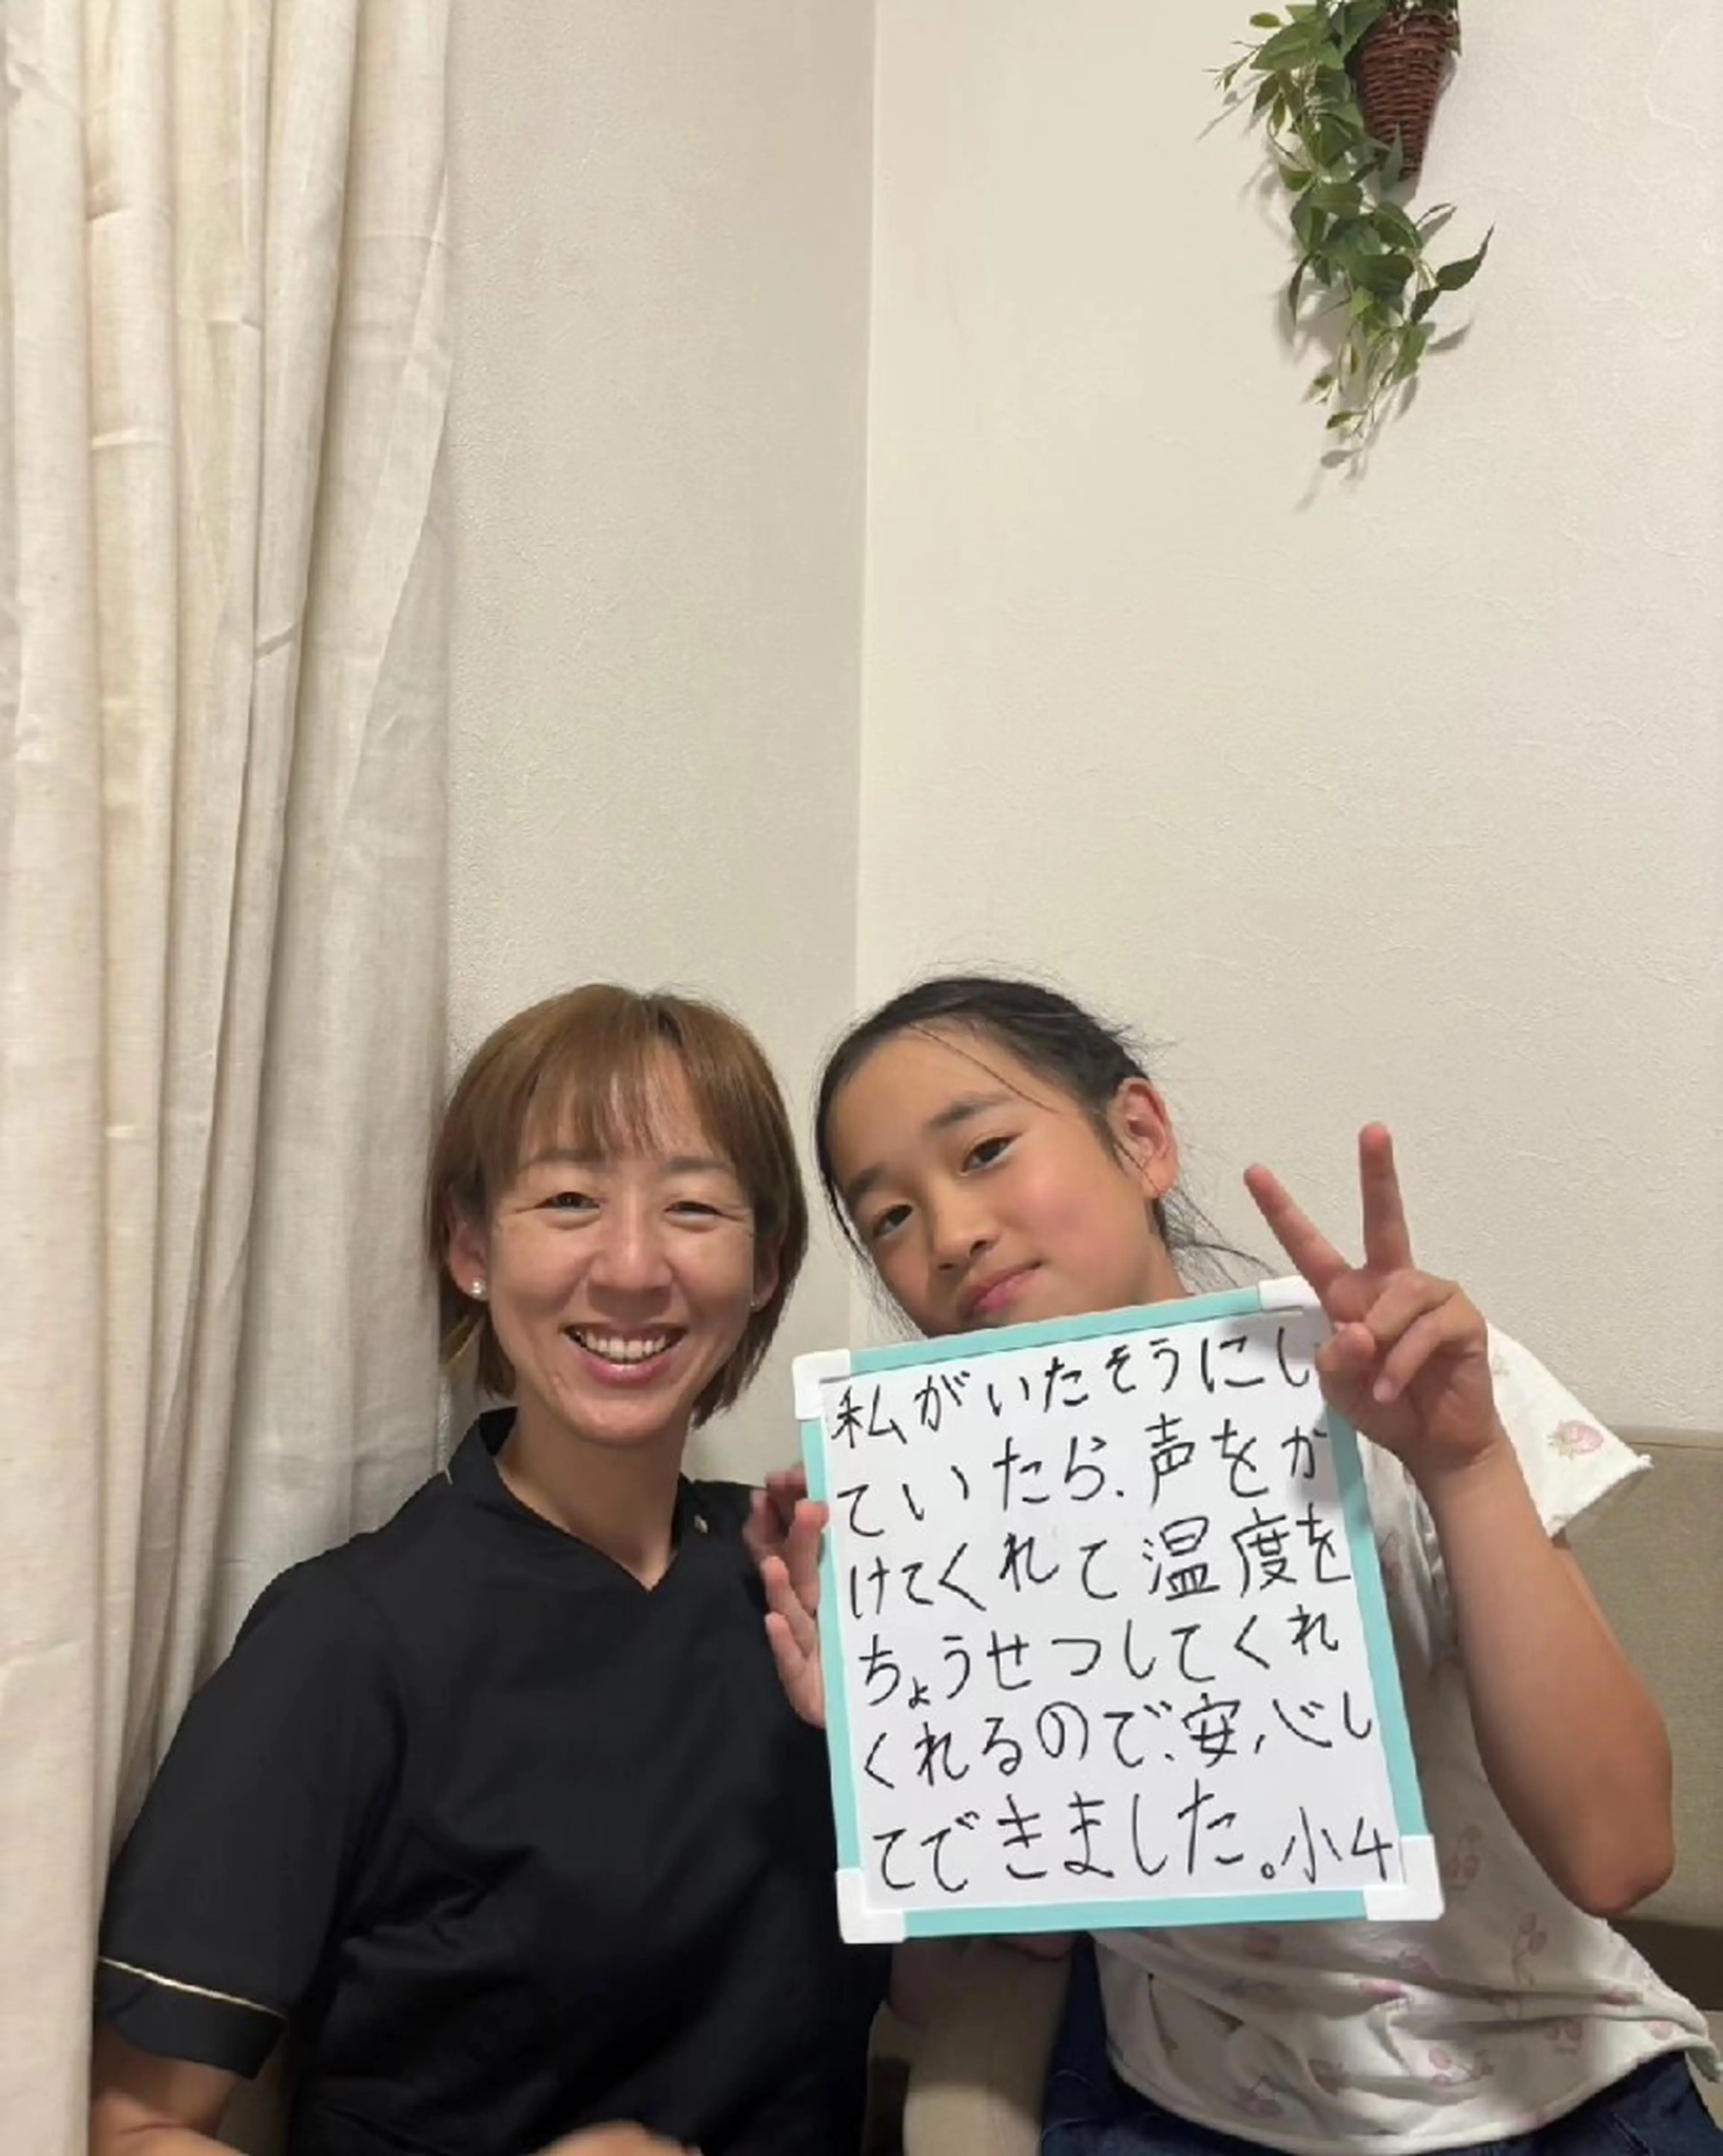 私がいたそうにし
ていたら、声をか
けてくれて温度を
ちょうせつしてくれ
くれるので、安心し
てできました。小4